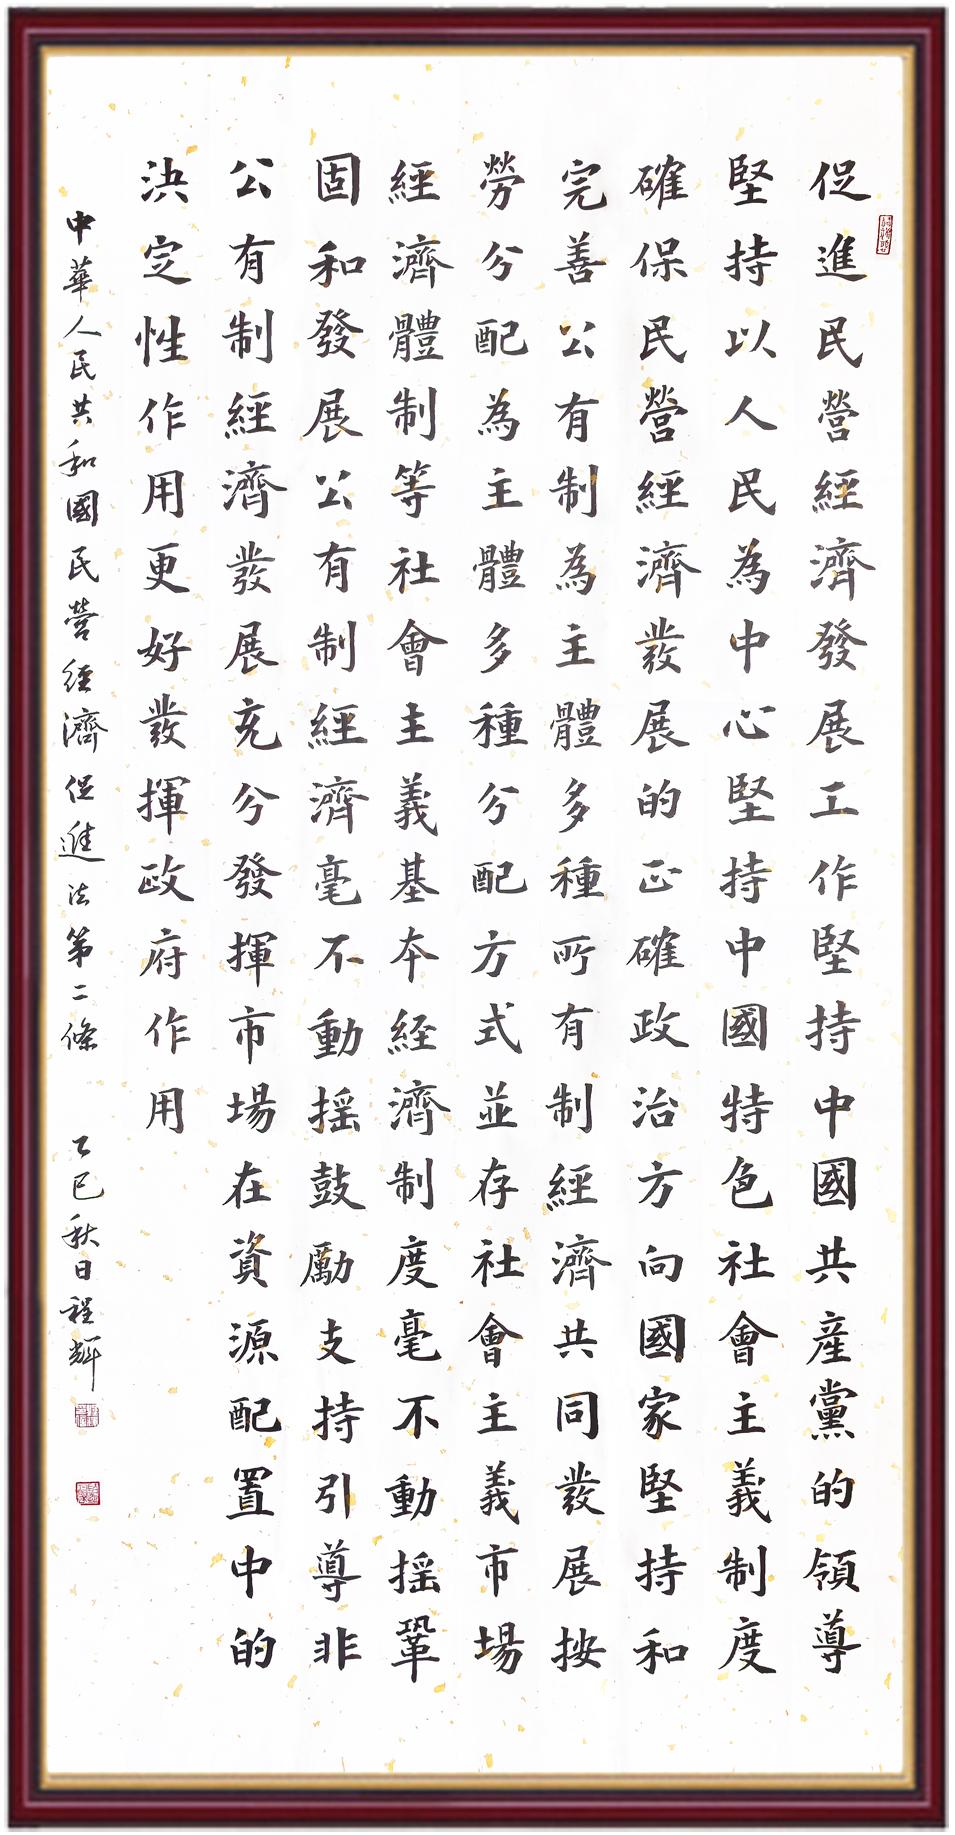 促進民營經濟發展工作堅持中國共產黨的領導
堅持以人民為中心堅持中國特色社會主義制度
確保民營經濟發展的正確政治方向國家堅持和
完善公有制為主體多種所有制經濟共同發展按
勞分配為主體多種分配方式並存社會主義市場
經濟體制等社會主義基本經濟制度毫不動搖鞏
固和發展公有制經濟毫不動搖鼓勵支持引導非
公有制經濟發展充分發揮市場在資源配置中的
決定性作用更好發揮政府作用
中華人民共和國民營經濟促進法第二條 乙巳秋日程輝